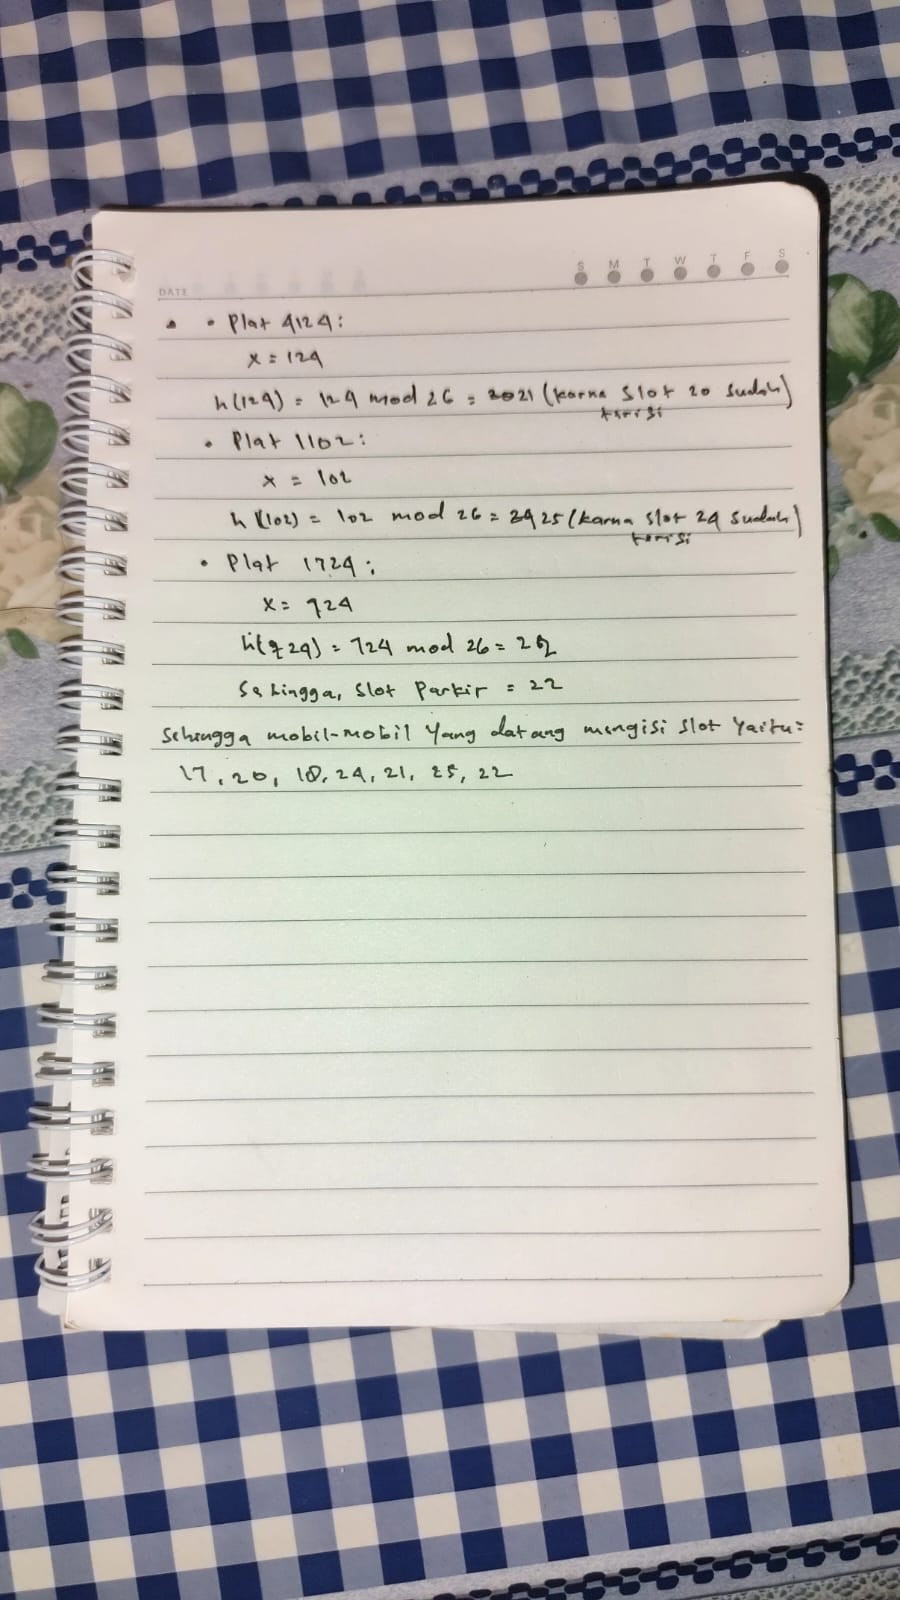 S M T W T F S
DATE
• • Plat 4124:
x = 124
h(124) = 124 mod 26 = 2021 (karna slot 20 sudah
terisi)
• Plat 1102:
x = 102
h(102) = 102 mod 26 = 2425 (karna slot 24 sudah
terisi)
• Plat 1724:
x = 724
h(724) = 724 mod 26 = 22
Sehingga, Slot Parkir = 22
Sehingga mobil-mobil Yang datang mengisi slot Yaitu:
17, 20, 18, 24, 21, 25, 22